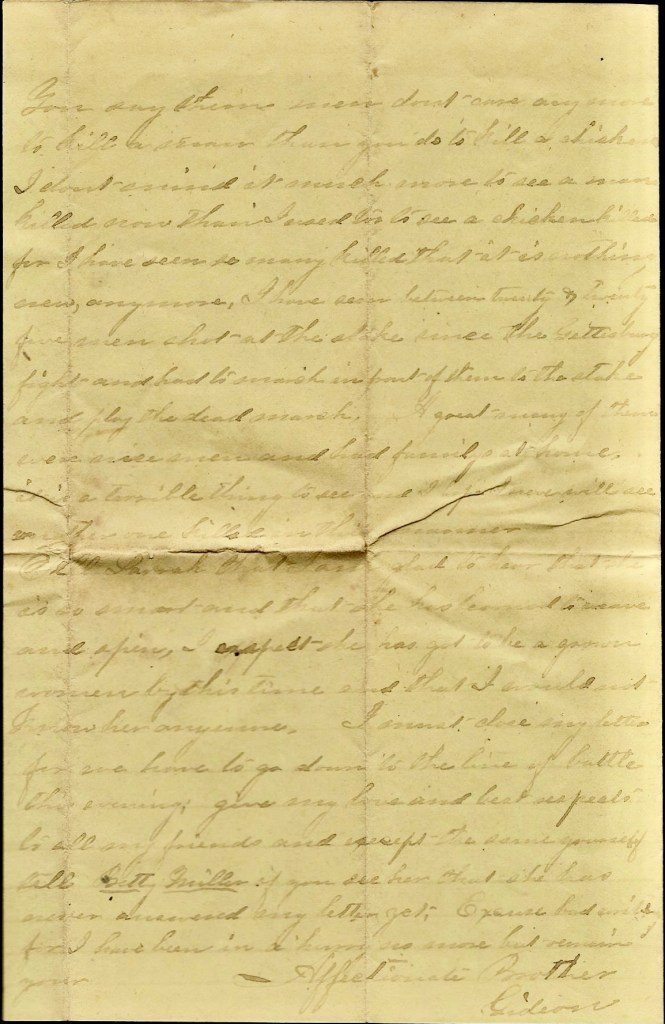 You say them men dont care any more
to kill a man than you do to kill a chicken
I dont mind it much more to see a man
killed now than I used to to see a chicken killed
for I have seen so many killed that it is nothing
new, anymore, I have seen between twenty & twenty
five men shot at the stake since the Gettesburg
fight and had to march in front of them to the stake
and play the dead march. A great many of them
were nice men and had familys at home.
it is a terrible thing to see and I hope I never will see
another one killed in this manner
Tell Sarah that I am glad to hear that she
is so smart and that she has learned to weave
and spin, I expect she has got to be a grown
women by this time and that I would not
know her anymore. I must close my letter
for we have to go down to the line of battle
this evening; give my love and best respects
to all my friends and except the same yourself
tell Betty Miller if you see her that she has
never answered my letter yet; Excuse bad
for I have been in a hurry no more but remain
your Affectionate Brother
Gideon